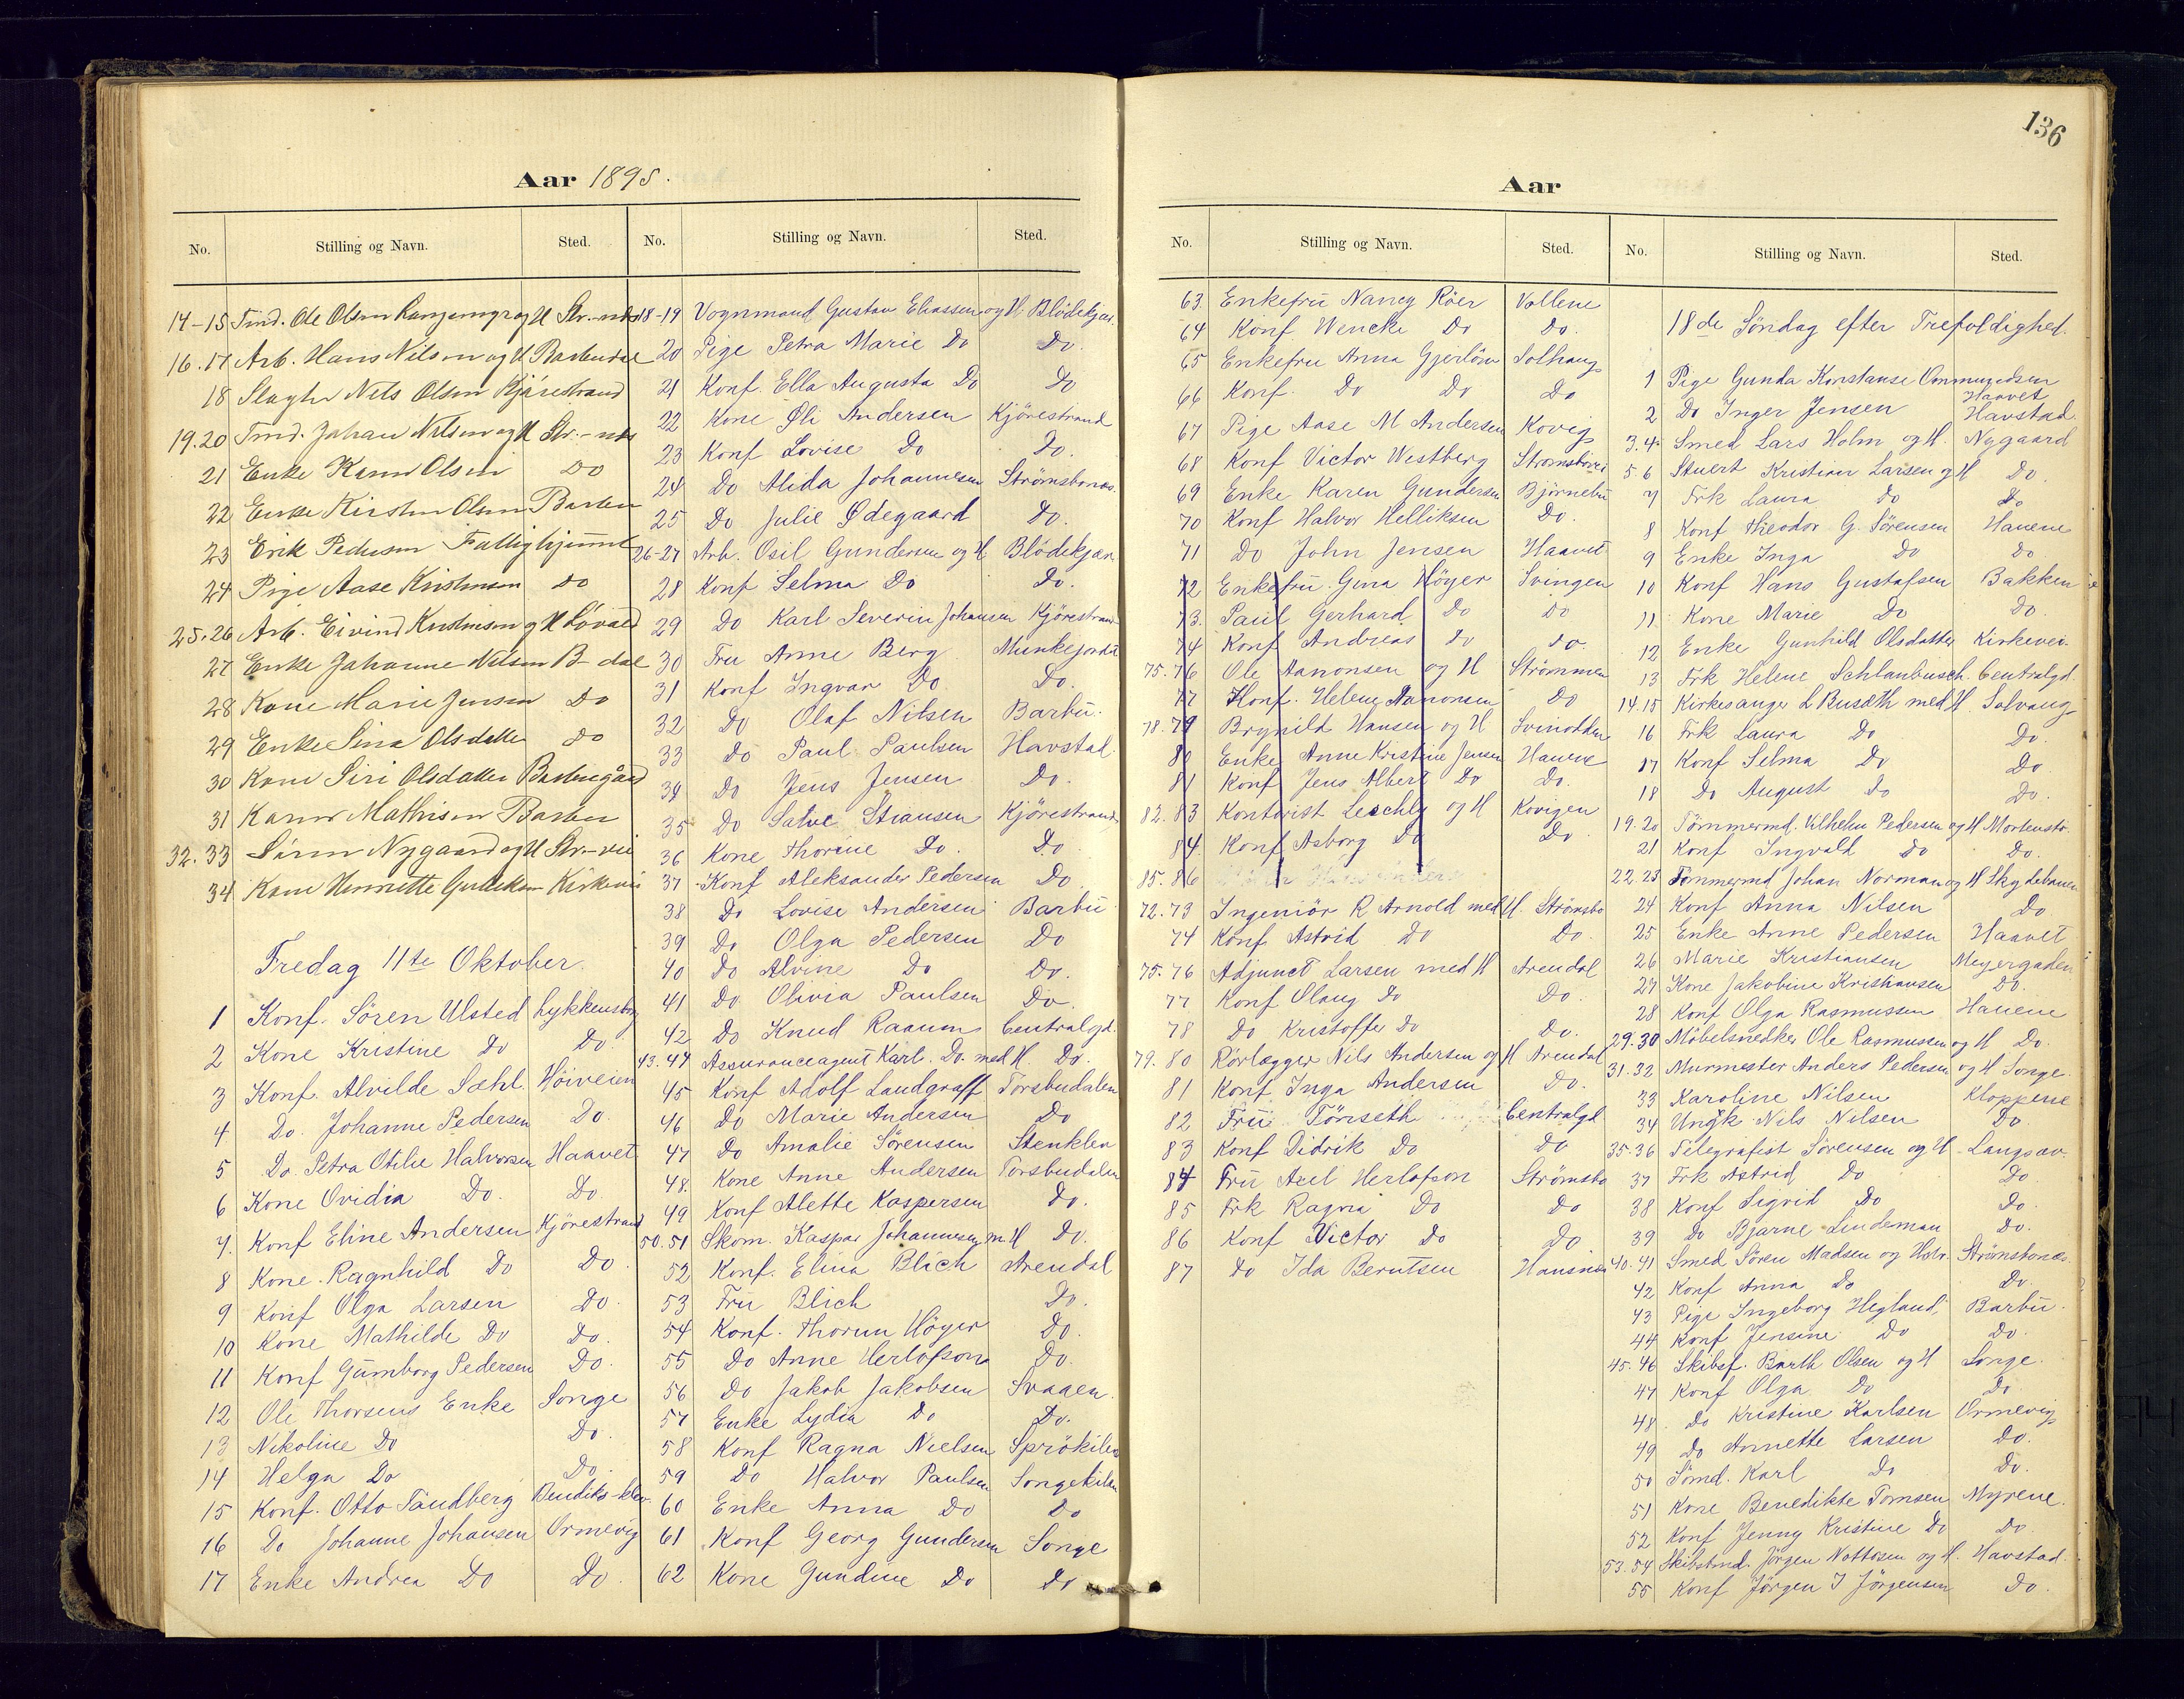 136
Aar 1895.
No. Stilling og Navn. Sted.
14-15 Tmd. Ole Olsen og H Str.-næs
16.17 Arb. Hans Nilsen og H Barbudal
18 Slagter Nils Olsen Kjörestrand
19.20 Tmd. Johan Nilsen og H Str.-næs
21 Enke Karen Olsen Do
22 Enke Kirsten Olsen Barbu
23 Erik Pedersen Fattighjemmet
24 Pige Aase Kristensen Do
25.26 Arb. Eivind Kristensen og H
27 Enke Johanne Nilsen B-dal
28 Kone Marie Jensen Do
29 Enke Sina Olsdatter Do
30 Kone Siri Olsdatter Barbugård
31 Karen Mathisen Barbu
32.33 Sören Nygaard og H Str-vei
34 Kone Henriette Gulliksen Kirkevei
Fredag 11te Oktober.
1 Konf. Sören Ulsted Lykkensborg
2 Kone Kristine Do Do
3 Konf. Alvilde Sæhl. Höiveien
4 Do. Johanne Pedersen Do.
5 Do. Petra Otilie Halvorsen Haavet
6 Kone Ovidia Do. Do
7. Konf Eline Andersen Kjörestrand
8 Kone Ragnhild Do Do
9 Konf Olga Larsen Do.
10 Kone Mathilde Do Do.
11 Konf Gumborg Pedersen Do.
12 Ole Thorsens Enke Songe
13 Nikoline Do Do.
14 Helga Do Do.
15 Konf. Otto Sandberg Bendiks-klev
16 Do Johanne Johansen Ormevig
17 Enke Andrea Do Do.
No. Stilling og Navn. Sted.
18-19 Vognmand Gustav Eliassen og H Blödekjær.
20 Pige Petra Marie Do Do.
21 Konf. Ella Augusta Do Do
22 Kone Oli Andersen Kjörestrand
23 Konf Lovise Do Do.
24 Do Alida Johannesen Strömsbonæs.
25 Do Julie Ødegaard Do.
26-27 Arb. Osil Gundersen og H Blödekjær.
28 Konf Selma Do Do.
29 Do Karl Severin Johansen Kjörestrand
30 Fru Anne Berg Munkejordet
31 Konf Ingvar Do Do.
32 Do Olaf Nilsen Barbu.
33 Do Paul Paulsen Havstad.
34 Do Jens Jensen Do.
35 Do Salve Stiansen Kjörestrand
36 Kone Thorine Do. Do.
37 Konf Aleksander Pedersen Do
38 Do Lovise Andersen Barbu
39 Do Olga Pedersen Do
40 Do Alvine Do Do.
41 Do Olivia Paulsen Do.
42 Do Knud Raaum Centralgd.
43.44 Assuranceagent Karl. Do. med H Do.
45 Konf Adolf Landgraff Torsbudalen
46 Do Marie Andersen Do
47 Do Amalie Sörensen Stenklev
48. Kone Anne Andersen Torsbudalen
49 Konf Alette Kaspersen Do.
50.51 Skom. Kaspar Johannesen m. H Do.
52 Konf. Elina Blich Arendal
53 Fru Blich Do.
54 Konf. Thorun Höyer Do.
55 Do Anne Herlofson Do.
56 Do Jakob Jakobsen Svaaen.
57 Enke Lydia Do Do.
58 Konf Ragna Nielsen Sprökilen
59 Do Halvor Paulsen Songekilen
60 Enke Anna Do Do
61 Konf Georg Gundersen Songe
62 Kone Gundine Do Do
Aar
No. Stilling og Navn. Sted.
63. Enkefru Nancy Röer Vollene
64 Konf Wencke Do Do.
65 Enkefru Anna Gjerlöw Solhaug
66 Konf. Do Do Do
67 Pige Aase M Andersen Kovig
68 Konf Victor Westberg Strömsboves
69 Enke Karen Gundersen Björnebu
70 Konf Halvor Helliksen Do.
71 Do John Jensen Haavet
72 Enkefru. Gina Höyer Svingen
73. Paul Gerhard Do Do
74 Konf Andreas Do Do.
75.76 Ole Aanonsen og H Strömmen
77 Konf. Helene Aanonsen Do
78.79 Brynild Hansen og H Svinodden
80 Enke Anne Kristine Jensen Hauene
81 Konf Jens Albert Do Do.
82.83 Kontorist Leschly og H Kovigen
84. Konf Asborg Do Do
85.86
72.73 Ingeniör R Arnold med H. Strömsbo
74 Konf Astrid Do Do.
75.76 Adjunct Larsen med H Arendal
77 Konf Olaug Do Do.
78 Do Kristoffer Do Do.
79.80 Rörlægger Nils Andersen og H Arendal
81 Konf Inga Andersen Do.
82 Fru Törseth Centralgd
83 Konf Didrik Do Do
84 Fru Axel Herlofson Strömsbo
85 Frk Ragna Do Do
86 Konf Victor Do Do
87 Do Ida Berntsen Hausnes
No. Stilling og Navn. Sted.
18de Söndag efter Trefoldighed.
1 Pige Gunda Konstanse Ommundsen Haavet
2 Do Inger Jensen Havstad.
3.4. Smed Lars Holm og H. Nygaard
5.6 Stuert Kristian Larsen og H Do.
7 Frk Laura Do Do
8 Konf Theodor G. Sörensen Hauene
9 Enke Inga Do Do.
10 Konf Hans Gustafsen Bakken
11 Kone Marie Do Do.
12 Enke Gunhild Olsdatter Kirkevei.
13 Frk Helene Schlanbusch. Centralgd.
14.15 Kirkesanger L Busæth med H. Solvang
16 Frk Laura Do Do.
17 Konf Selma Do Do
18 Do August Do Do.
19.20 Tömmermd. Vilhelm Pedersen og H Mortenstr.
21 Konf Ingvald Do Do.
22.23 Tömmermd Johan Norman og H Skydebanen
24 Konf Anna Nilsen Do
25 Enke Anne Pedersen Haavet
26 Marie Kristiansen Meyergaden
27 Kone Jakobine Kristiansen Do.
28 Konf Olga Rasmussen Hauene
29.30 Möbelsnedker Ole Rasmussen og H Do.
31.32 Murmester Anders Pedersen og H Songe
33 Karoline Nilsen Kloppene
34 Ungk Nils Nilsen Do
35.36 Telegrafist Sörensen og H Langsæv.
37 Frk Astrid Do Do.
38 Konf Sigrid Do Do.
39 Do Bjarne Lindeman Do.
40.41 Smed Sören Madsen og Hstr. Strömsbonæs
42 Konf Anna Do Do.
43 Pige Ingeborg Hegland. Barbu.
44 Konf Jensine Do Do.
45.46 Skibsf. Barth Olsen og H Songe.
47 Konf Olga Do Do
48. Do Kristine Karlsen Ormevig
49 Do Annette Larsen Do.
50 Sömd. Karl Do Do.
51 Kone Benedikte Tomsen Myrene.
52 Konf Jenny Kristine Do Do.
53.54 Skibstmd. Jörgen Nottosen og H. Havstad.
55 Konf Jörgen J Jörgensen Do.